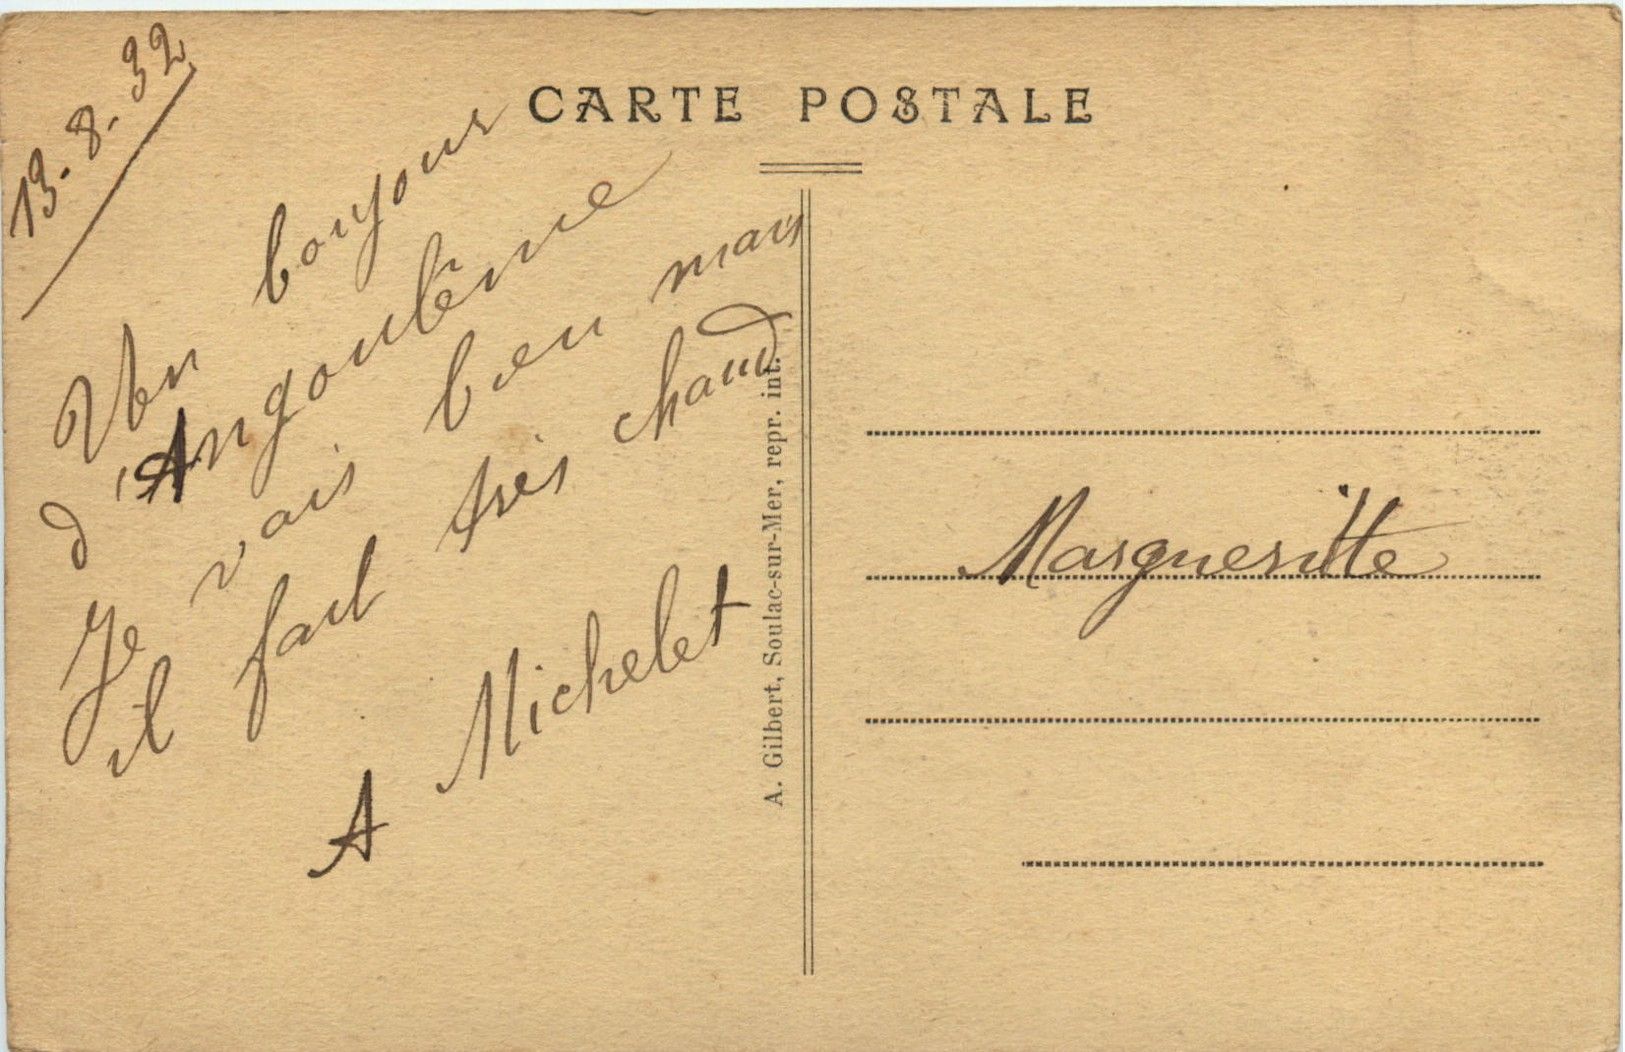 CARTE POSTALE
13.8.32
Un bonjour
d'Angoulême
Je vais bien mais
il fait très chaud
A Michelet
A. Gilbert, Soulac-sur-Mer, repr. int.
Margueritte